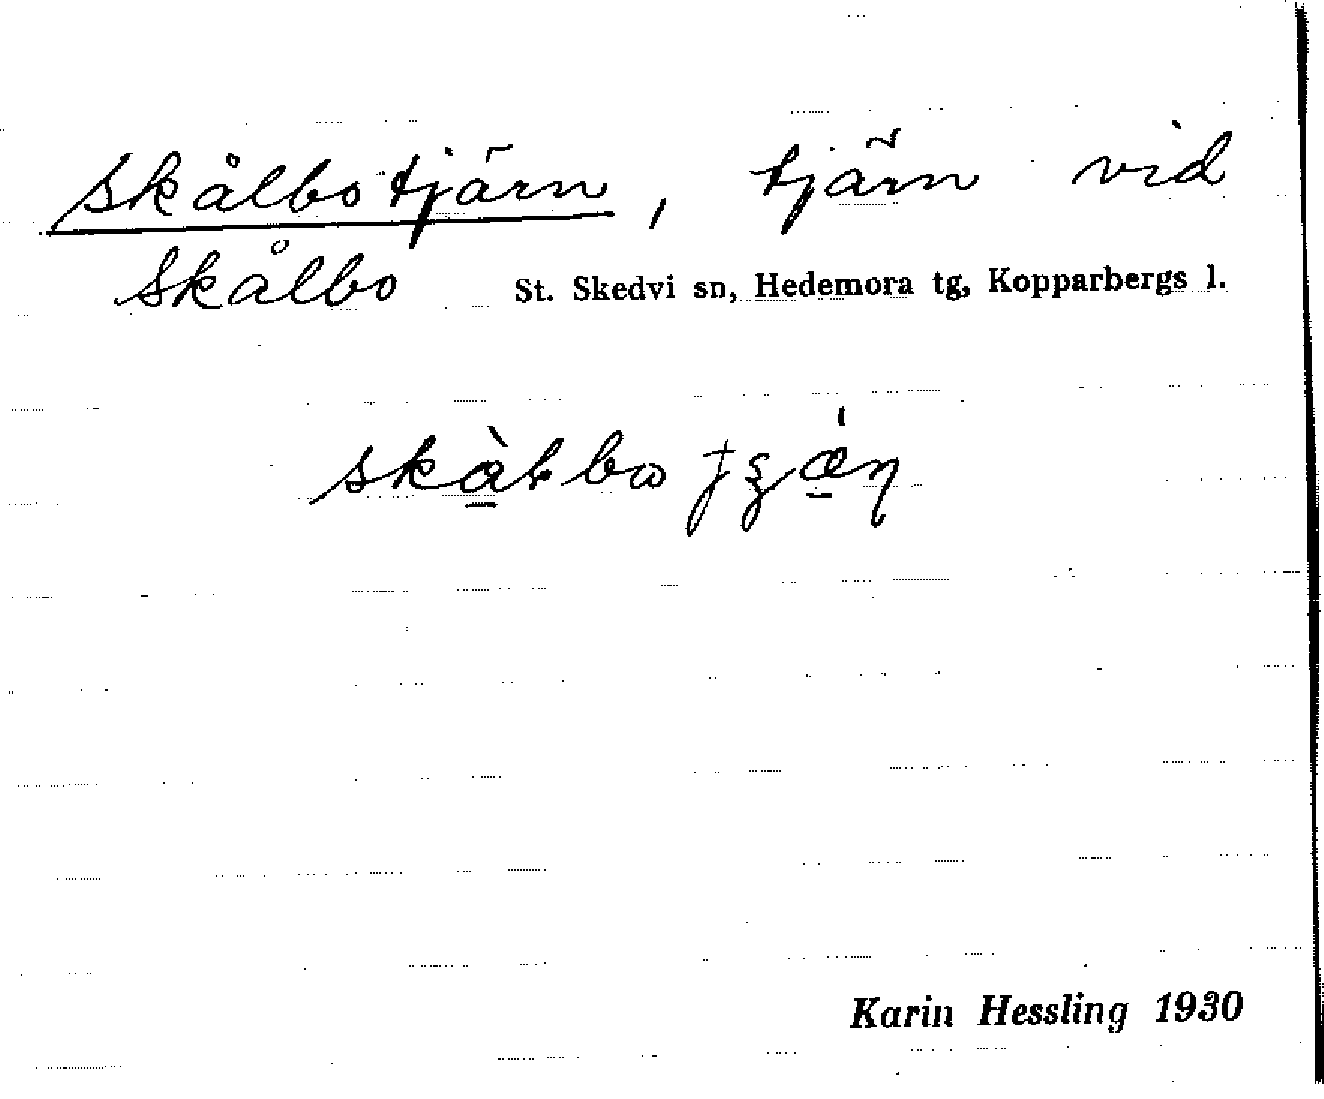 Skålbotjärn, tjärn vid
Skålbo St. Skedvi sn, Hedemora tg, Kopparbergs l.
Karin Hessling 1930